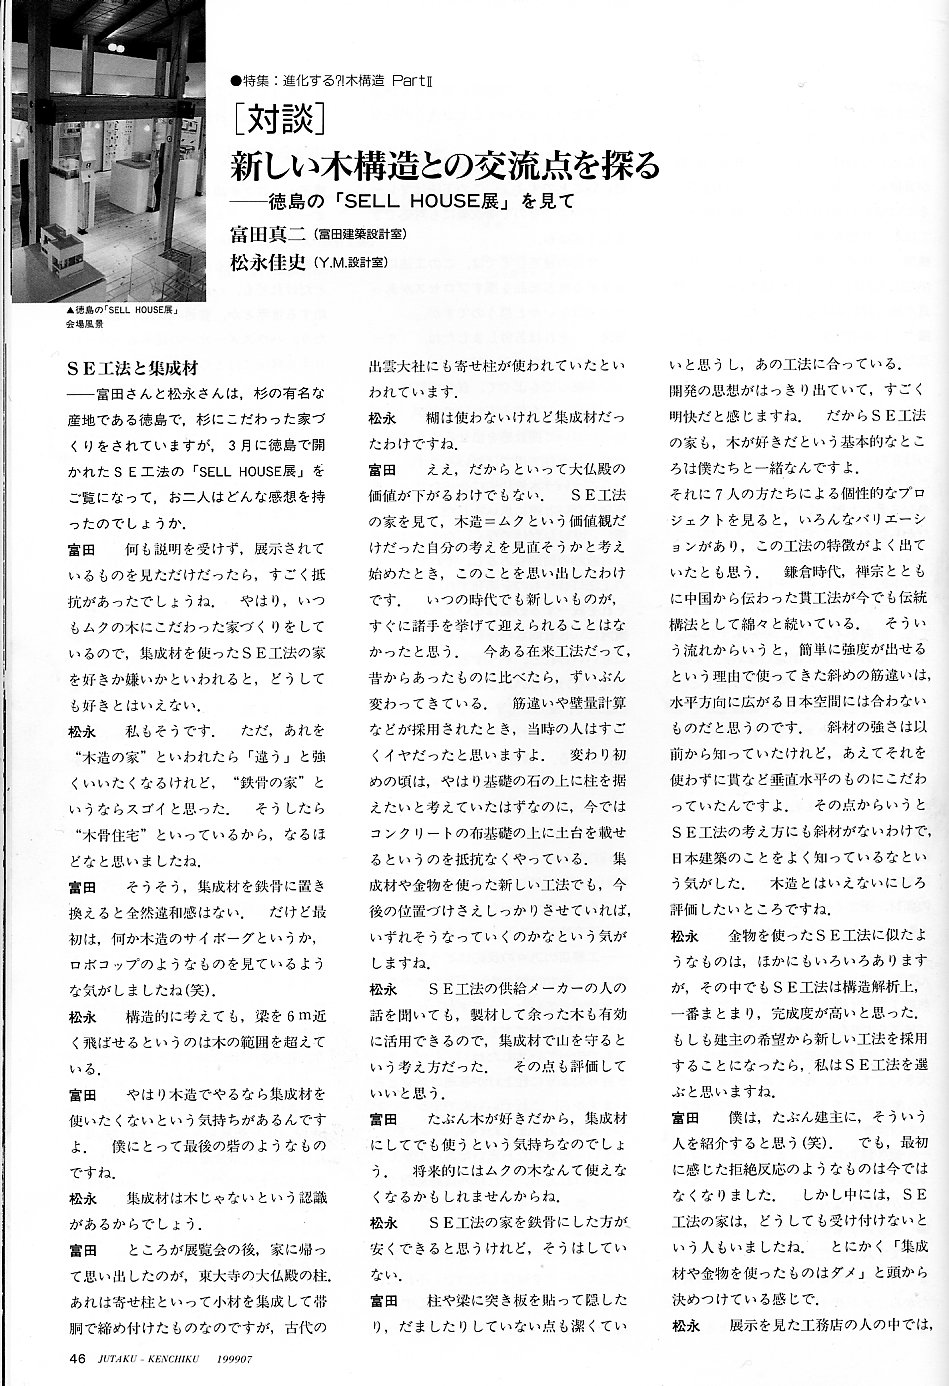 ●特集：進化する?!木構造 PartⅡ
［対談］
新しい木構造との交流点を探る
――徳島の「SELL HOUSE展」を見て
富田真二（富田建築設計室）
松永佳史（Y.M.設計室）
▲徳島の「SELL HOUSE展」
会場風景
ＳＥ工法と集成材
――富田さんと松永さんは，杉の有名な
産地である徳島で，杉にこだわった家づ
くりをされていますが，３月に徳島で開
かれたＳＥ工法の「SELL HOUSE展」を
ご覧になって，お二人はどんな感想を持
ったのでしょうか．
富田　何も説明を受けず，展示されて
いるものを見ただけだったら，すごく抵
抗があったでしょうね．　やはり，いつ
もムクの木にこだわった家づくりをして
いるので，集成材を使ったＳＥ工法の家
を好きか嫌いかといわれると，どうして
も好きとはいえない．
松永　私もそうです．　ただ，あれを
“木造の家”といわれたら「違う」と強
くいいたくなるけれど，“鉄骨の家”と
いうならスゴイと思った．　そうしたら
“木骨住宅”といっているから，なるほ
どなと思いましたね．
富田　そうそう，集成材を鉄骨に置き
換えると全然違和感はない．　だけど最
初は，何か木造のサイボーグというか，
ロボコップのようなものを見ているよう
な気がしましたね(笑)．
松永　構造的に考えても，梁を６ｍ近
く飛ばせるというのは木の範囲を超えて
いる．
富田　やはり木造でやるなら集成材を
使いたくないという気持ちがあるんです
よ．　僕にとって最後の砦のようなもの
ですね．
松永　集成材は木じゃないという認識
があるからでしょう．
富田　ところが展覧会の後，家に帰っ
て思い出したのが，東大寺の大仏殿の柱．
あれは寄せ柱といって小材を集成して帯
胴で締め付けたものなのですが，古代の
出雲大社にも寄せ柱が使われていたとい
われています．
松永　糊は使わないけれど集成材だっ
たわけですね．
富田　ええ，だからといって大仏殿の
価値が下がるわけでもない．　ＳＥ工法
の家を見て，木造＝ムクという価値観だ
けだった自分の考えを見直そうかと考え
始めたとき，このことを思い出したわけ
です．　いつの時代でも新しいものが，
すぐに諸手を挙げて迎えられることはな
かったと思う．　今ある在来工法だって，
昔からあったものに比べたら，ずいぶん
変わってきている．　筋違いや壁量計算
などが採用されたとき，当時の人はすご
くイヤだったと思いますよ．　変わり初
めの頃は，やはり基礎の石の上に柱を据
えたいと考えていたはずなのに，今では
コンクリートの布基礎の上に土台を載せ
るというのを抵抗なくやっている．　集
成材や金物を使った新しい工法でも，今
後の位置づけさえしっかりさせていれば，
いずれそうなっていくのかなという気が
しますね．
松永　ＳＥ工法の供給メーカーの人の
話を聞いても，製材して余った木も有効
に活用できるので，集成材で山を守ると
いう考え方だった．　その点も評価して
いいと思う．
富田　たぶん木が好きだから，集成材
にしてでも使うという気持ちなのでしょ
う．　将来的にはムクの木なんて使えな
くなるかもしれませんからね．
松永　ＳＥ工法の家を鉄骨にした方が
安くできると思うけれど，そうはしてい
ない．
富田　柱や梁に突き板を貼って隠した
り，だましたりしていない点も潔くてい
いと思うし，あの工法に合っている．
開発の思想がはっきり出ていて，すごく
明快だと感じますね．　だからＳＥ工法
の家も，木が好きだという基本的なとこ
ろは僕たちと一緒なんですよ．
それに７人の方たちによる個性的なプロ
ジェクトを見ると，いろんなバリエーシ
ョンがあり，この工法の特徴がよく出て
いたとも思う．　鎌倉時代，禅宗ととも
に中国から伝わった貫工法が今でも伝統
構法として綿々と続いている．　そうい
う流れからいうと，簡単に強度が出せる
という理由で使ってきた斜めの筋違いは，
水平方向に広がる日本空間には合わない
ものだと思うのです．　斜材の強さは以
前から知っていたけれど，あえてそれを
使わずに貫など垂直水平のものにこだわ
っていたんですよ．　その点からいうと
ＳＥ工法の考え方にも斜材がないわけで，
日本建築のことをよく知っているなとい
う気がした．　木造とはいえないにしろ
評価したいところですね．
松永　金物を使ったＳＥ工法に似たよ
うなものは，ほかにもいろいろあります
が，その中でもＳＥ工法は構造解析上，
一番まとまり，完成度が高いと思った．
もしも建主の希望から新しい工法を採用
することになったら，私はＳＥ工法を選
ぶと思いますね．
富田　僕は，たぶん建主に，そういう
人を紹介すると思う(笑)．　でも，最初
に感じた拒絶反応のようなものは今では
なくなりました．　しかし中には，ＳＥ
工法の家は，どうしても受け付けないと
いう人もいましたね．　とにかく「集成
材や金物を使ったものはダメ」と頭から
決めつけている感じで．
松永　展示を見た工務店の人の中では，
46 JUTAKU－KENCHIKU 199907